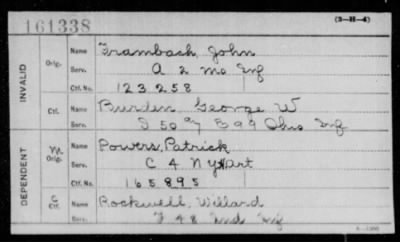 161338 (3-H-4)
INVALID Orig. Name Frambach, John
Serv. A 2 Mo Inf
Ctf. No. 123258
Ctf. Name Burden George W
Serv. I 50 B 99 Ohio Inf
DEPENDENT M. Orig. Name Powers, Patrick
Serv. C 4 NY Art
Ctf. No. 165895
C Ctf. Name Rockwell, Willard
Serv. F 48 Ind Inf